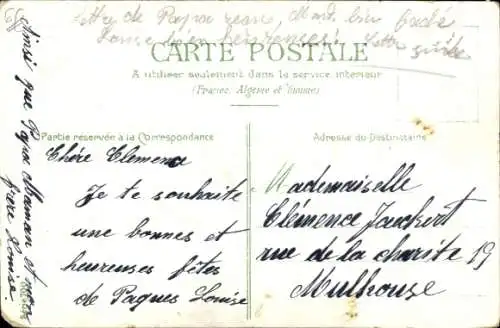 lettre de Papa reçue, Md. bien gardé
Louise bien heureuses! lettre suivra
CARTE POSTALE
A utiliser seulement dans le service intérieur
(France, Algérie et Tunisie)
Partie réservée à la Correspondance
Adresse du Destinataire
Chère Clemence
Je te souhaite
une bonnes et
heureuses fêtes
de Paques Louise
Ainsi que Papa Maman et mon
frere
Mademaiselle
Clémence Jauckert
rue de la charite 19
Mulhouse